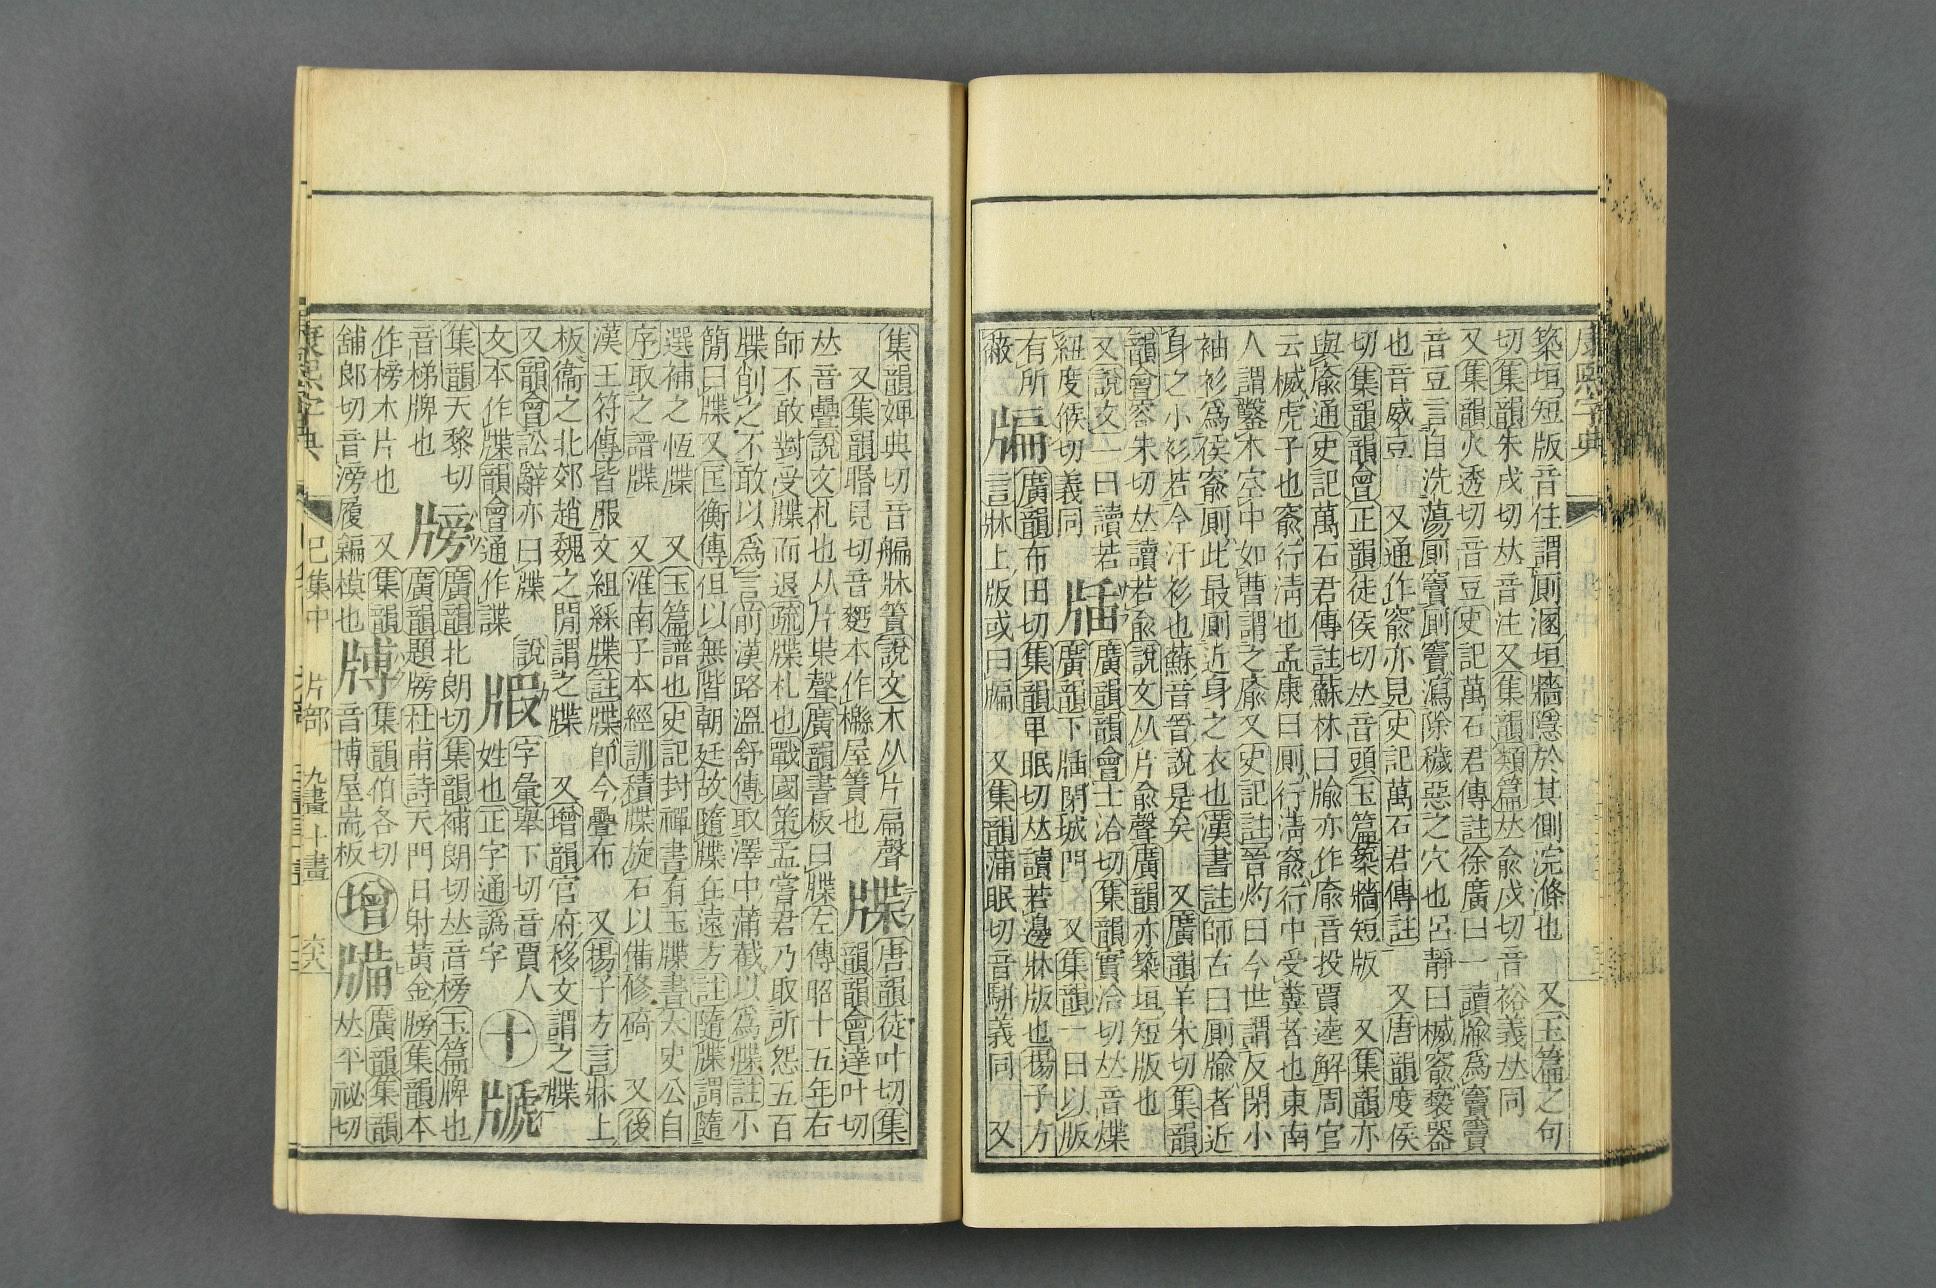 康熙字典
築垣短版音住謂廁溷垣牆隱於其側浣滌也 又玉篇之句
切集韻朱戍切𠀤音注又集韻類篇𠀤俞戍切音裕義𠀤同
又集韻火透切音豆史記萬石君傳註徐廣曰一讀牏爲竇竇
音豆言自洗蕩廁竇廁竇瀉除穢惡之穴也呂靜曰楲窬褻器
也音威豆 又通作窬亦見史記萬石君傳註 又唐韻度侯
切集韻韻會正韻徒侯切𠀤音頭玉篇築牆短版 又集韻亦
與廥通史記萬石君傳註蘇林曰牏亦作廥音投賈逵解周官
云楲虎子也窬行淸也孟康曰廁行淸窬行中受糞者也東南
人謂鑿木空中如曹謂之廥又史記註晉灼曰今世謂反閉小
袖衫爲侯窬廁此最廁近身之衣也漢書註師古曰廁牏者近
身之小衫若今汗衫也蘇音晉說是矣 又廣韻羊朱切集韻
韻會容朱切𠀤讀若俞說文从片俞聲廣韻亦築垣短版也
又說文一曰讀若紐度候切義同 牐 廣韻韻會士洽切集韻實洽切𠀤音煠
廣韻下牐閉城門 又集韻一曰以版有所蔽
牑 廣韻布田切集韻𤰞眠切𠀤讀若邊牀版也揚子方
言牀上版或曰牑 又集韻蒲眠切音騈義同 又
集韻婢典切音艑牀簀說文木从片扁聲
又集韻䁕見切音麫本作櫋屋簀也
牒 唐韻徒叶切集韻韻會達叶切
𠀤音疊說文札也从片枼聲廣韻書板曰牒左傳昭十五年右
師不敢對受牒而退疏牒札也戰國策孟嘗君乃取所怨五百
牒削之不敢以爲言前漢路溫舒傳取澤中蒲截以爲牒註小
簡曰牒又匡衡傳但以無階朝廷故隨牒在遠方註隨牒謂隨
選補之恆牒 又玉篇譜也史記封禪書有玉牒書太史公自
序取之譜牒 又淮南子本經訓積牒旋石以備修碕 又後
漢王符傳皆服文組綵牒註牒卽今疊布 又揚子方言牀上
板衞之北郊趙魏之閒謂之牒 又增韻官府移文謂之牒
又韻會訟辭亦曰牒 說文本作㸣韻會通作諜
𤗇 字彙舉下切音賈人姓也正字通譌字
十
㸡 集韻天黎切音梯牌也
牓 廣韻北朗切集韻補朗切𠀤音榜玉篇牌也
廣韻題牓杜甫詩天門日射黃金牓集韻本作榜木片也 又集韻
舖郞切音滂履編模也
牔 集韻伯各切音博屋耑板
增
𤗏 廣韻集韻𠀤平祕切
康熙字典 巳集中 片部 九畫十畫 六八